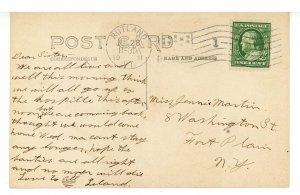 RUTLAND
28
POST CARD
CORRESPONDENCE
NAME AND ADDRESS
U.S. POSTAGE
ONE CENT
Dear Sister
We are all live and
well this morning think
we will all go up to
the hospittle this after
noon. We are coming back
thought we would come
home Wed. ma cant stay
any longer, hope the
are all right
and no more will die
Love to all Leland.
Miss Jennie Martin
8 Washington St
Fort Plain
N.Y.